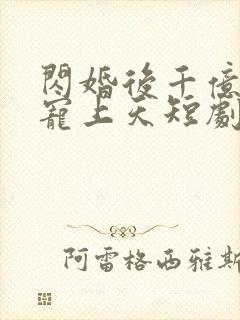 閃婚後千億
寵上天短劇
阿雷格西雅斯